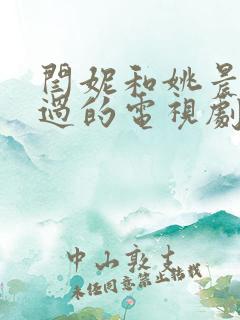 閆妮和姚晨
過的電視劇
中山敦支
未經同意禁止轉載